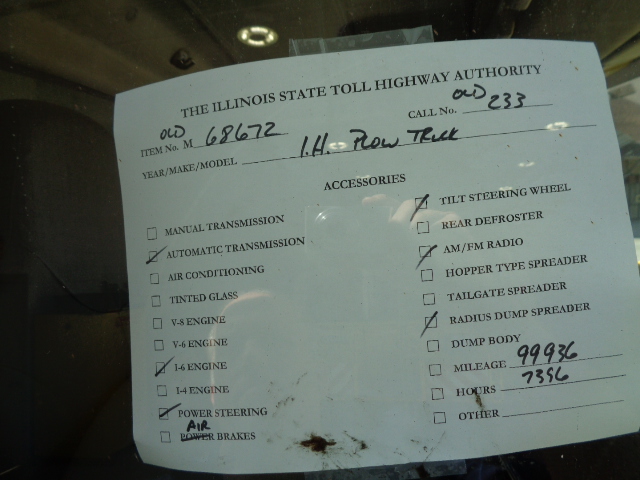 THE ILLINOIS STATE TOLL HIGHWAY AUTHORITY
ITEM No. M OLD 68672
CALL No. OLD 233
YEAR/MAKE/MODEL I.H. PLOW TRUCK
ACCESSORIES
MANUAL TRANSMISSION
AUTOMATIC TRANSMISSION
AIR CONDITIONING
TINTED GLASS
V-8 ENGINE
V-6 ENGINE
I-6 ENGINE
I-4 ENGINE
POWER STEERING
AIR
POWER BRAKES
TILT STEERING WHEEL
REAR DEFROSTER
AM/FM RADIO
HOPPER TYPE SPREADER
TAILGATE SPREADER
RADIUS DUMP SPREADER
DUMP BODY
MILEAGE 99936
HOURS 7356
OTHER